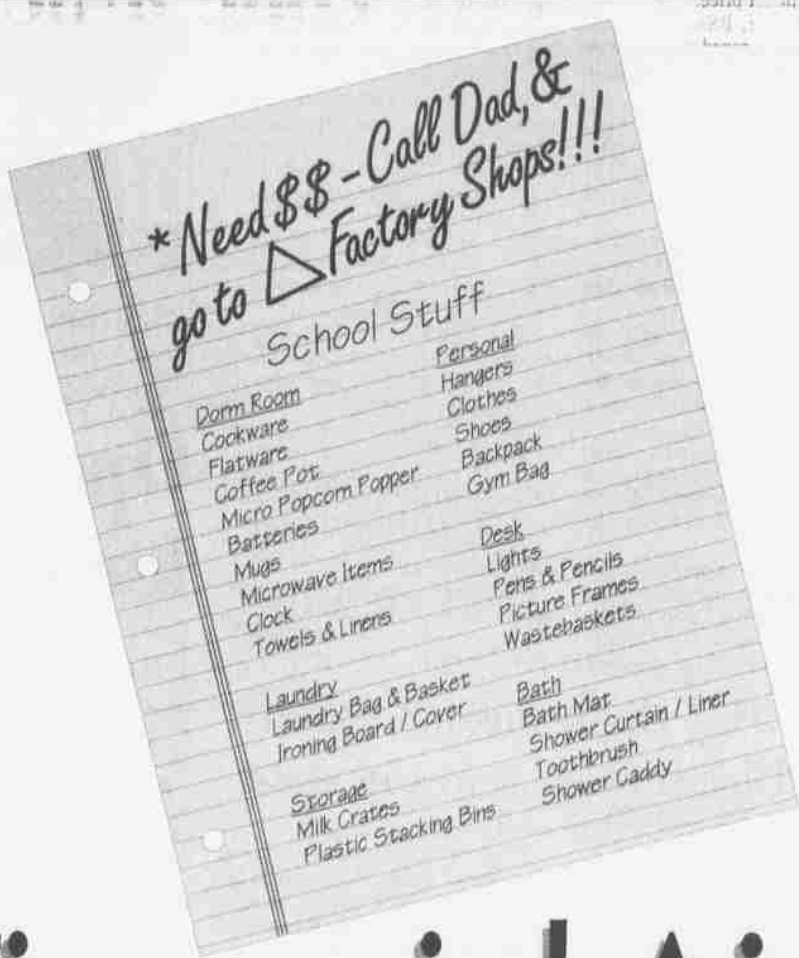 *Need $$ - Call Dad, &
go to Factory Shops!!!
School Stuff
Dorm Room
Cookware
Flatware
Coffee Pot
Micro Popcorn Popper
Batteries
Mugs
Microwave Items
Clock
Towels & Linens
Laundry
Laundry Bag & Basket
Ironing Board / Cover
Storage
Milk Crates
Plastic Stacking Bins
Personal
Hangers
Clothes
Shoes
Backpack
Gym Bag
Desk
Lights
Pens & Pencils
Picture Frames
Wastebaskets
Bath
Bath Mat
Shower Curtain / Liner
Toothbrush
Shower Caddy